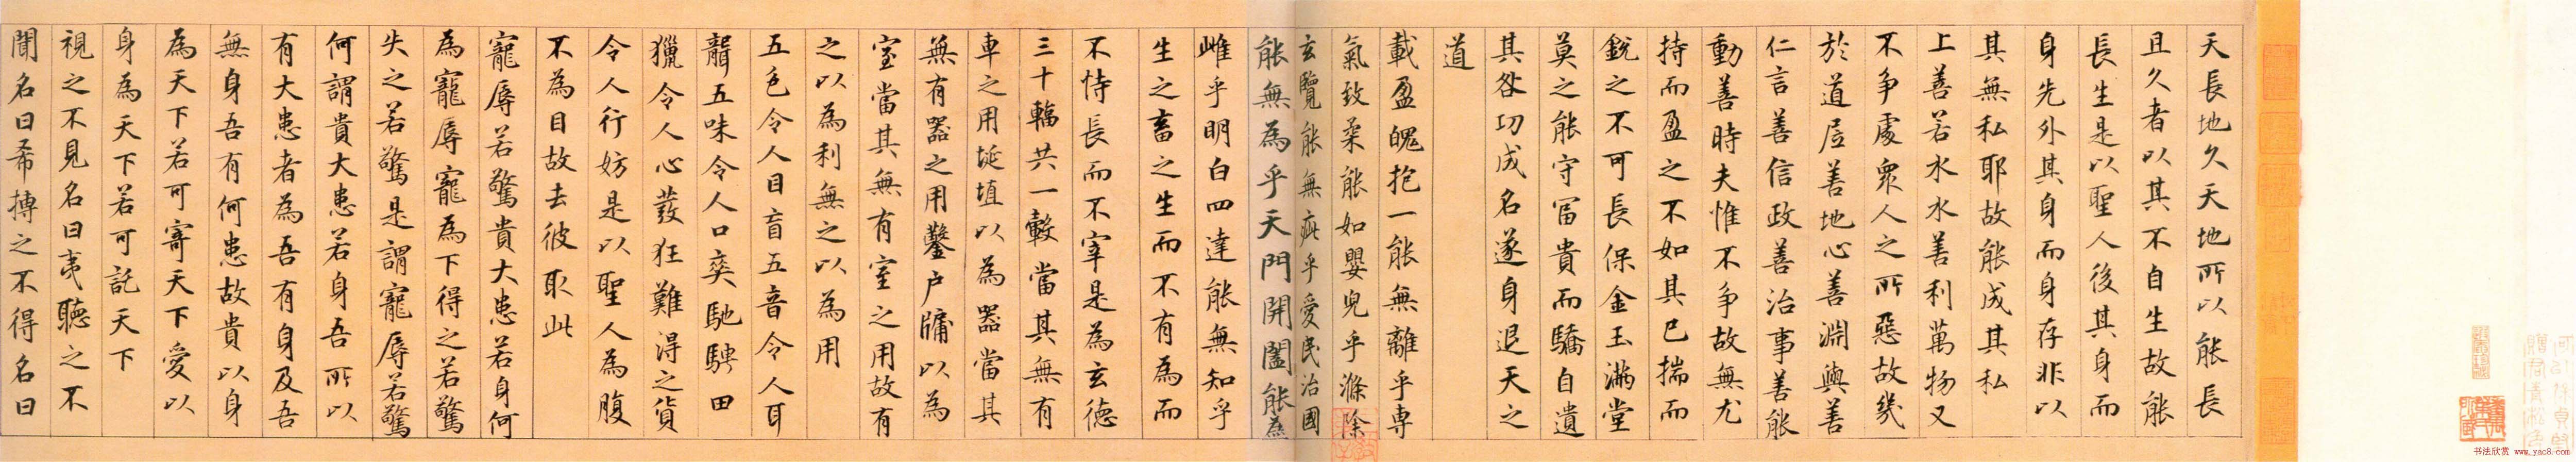 天長地久天地所以能長
且久者以其不自生故能
長生是以聖人後其身而
身先外其身而身存非以
其無私耶故能成其私
上善若水水善利萬物又
不爭處衆人之所惡故幾
於道居善地心善淵與善
仁言善信政善治事善能
動善時夫惟不爭故無尤
持而盈之不如其已揣而
銳之不可長保金玉滿堂
莫之能守冨貴而驕自遺
其咎功成名遂身退天之
道
載盈魄抱一能無離乎專
氣致柔能如嬰兒乎滌除
玄覽能無疵乎愛民治國
能無為乎天門開闔能為
雌乎明白四達能無知乎
生之畜之生而不有為而
不恃長而不宰是為玄德
三十輻共一轂當其無有
車之用埏埴以為器當其
無有器之用鑿户牖以為
室當其無有室之用故有
之以為利無之以為用
五色令人目盲五音令人耳
聾五味令人口爽馳騁田
獵令人心發狂難得之貨
令人行妨是以聖人為腹
不為目故去彼取此
寵辱若驚貴大患若身何
為寵辱寵為下得之若驚
失之若驚是謂寵辱若驚
何謂貴大患若身吾所以
有大患者為吾有身及吾
無身吾有何患故貴以身
為天下若可寄天下愛以
身為天下若可託天下
視之不見名曰夷聽之不
聞名曰希搏之不得名曰
书法欣赏 www.yac8.com